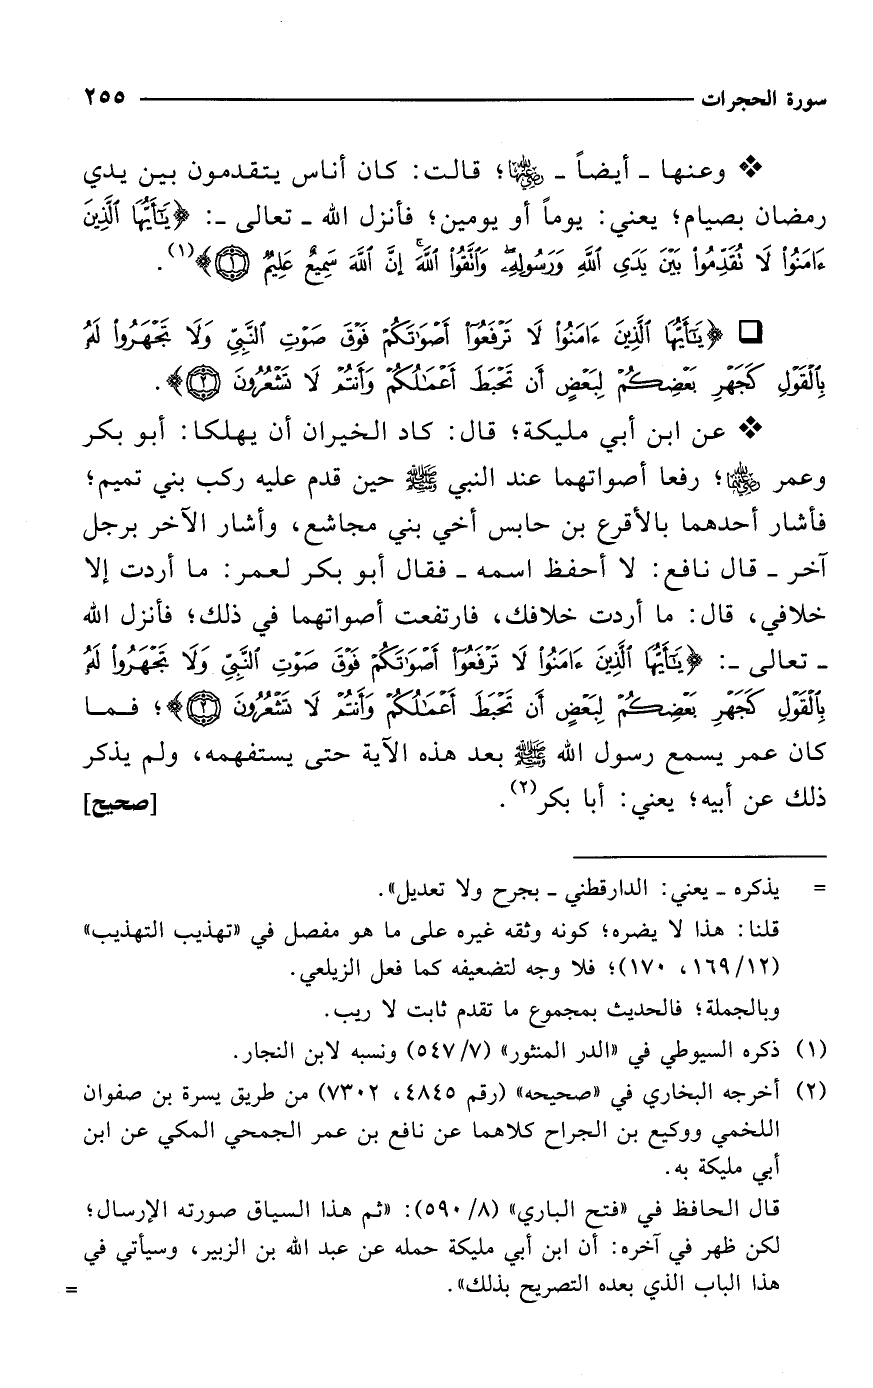 سورة الحجرات ٢٥٥
❖ وعنها ـ أيضاً ـ ﵂؛ قالت: كان أناس يتقدمون بين يدي
رمضان بصيام؛ يعني: يوماً أو يومين؛ فأنزل الله ـ تعالى ـ: ﴿يَٰٓأَيُّهَا ٱلَّذِينَ
ءَامَنُوا۟ لَا تُقَدِّمُوا۟ بَيْنَ يَدَىِ ٱللَّهِ وَرَسُولِهِۦ ۖ وَٱتَّقُوا۟ ٱللَّهَ ۚ إِنَّ ٱللَّهَ سَمِيعٌ عَلِيمٌ ۝١﴾(١).
❏ ﴿يَٰٓأَيُّهَا ٱلَّذِينَ ءَامَنُوا۟ لَا تَرْفَعُوٓا۟ أَصْوَٰتَكُمْ فَوْقَ صَوْتِ ٱلنَّبِىِّ وَلَا تَجْهَرُوا۟ لَهُۥ
بِٱلْقَوْلِ كَجَهْرِ بَعْضِكُمْ لِبَعْضٍ أَن تَحْبَطَ أَعْمَٰلُكُمْ وَأَنتُمْ لَا تَشْعُرُونَ ۝٢﴾.
❖ عن ابن أبي مليكة؛ قال: كاد الخيران أن يهلكا: أبو بكر
وعمر ﵄؛ رفعا أصواتهما عند النبي ﷺ حين قدم عليه ركب بني تميم؛
فأشار أحدهما بالأقرع بن حابس أخي بني مجاشع، وأشار الآخر برجل
آخر ـ قال نافع: لا أحفظ اسمه ـ فقال أبو بكر لعمر: ما أردت إلا
خلافي، قال: ما أردت خلافك، فارتفعت أصواتهما في ذلك؛ فأنزل الله
ـ تعالى ـ: ﴿يَٰٓأَيُّهَا ٱلَّذِينَ ءَامَنُوا۟ لَا تَرْفَعُوٓا۟ أَصْوَٰتَكُمْ فَوْقَ صَوْتِ ٱلنَّبِىِّ وَلَا تَجْهَرُوا۟ لَهُۥ
بِٱلْقَوْلِ كَجَهْرِ بَعْضِكُمْ لِبَعْضٍ أَن تَحْبَطَ أَعْمَٰلُكُمْ وَأَنتُمْ لَا تَشْعُرُونَ ۝٢﴾؛ فـمـا
كان عمر يسمع رسول الله ﷺ بعد هذه الآية حتى يستفهمه، ولم يذكر
ذلك عن أبيه؛ يعني: أبا بكر(٢). [صحيح]
= يذكره ـ يعني: الدارقطني ـ بجرح ولا تعديل».
قلنا: هذا لا يضره؛ كونه وثقه غيره على ما هو مفصل في «تهذيب التهذيب»
(١٢/ ١٦٩، ١٧٠)؛ فلا وجه لتضعيفه كما فعل الزيلعي.
وبالجملة؛ فالحديث بمجموع ما تقدم ثابت لا ريب.
(١) ذكره السيوطي في «الدر المنثور» (٧/ ٥٤٧) ونسبه لابن النجار.
(٢) أخرجه البخاري في «صحيحه» (رقم ٤٨٤٥، ٧٣٠٢) من طريق يسرة بن صفوان
اللخمي ووكيع بن الجراح كلاهما عن نافع بن عمر الجمحي المكي عن ابن
أبي مليكة به.
قال الحافظ في «فتح الباري» (٨/ ٥٩٠): «ثم هذا السياق صورته الإرسال؛
لكن ظهر في آخره: أن ابن أبي مليكة حمله عن عبد الله بن الزبير، وسيأتي في
هذا الباب الذي بعده التصريح بذلك». =